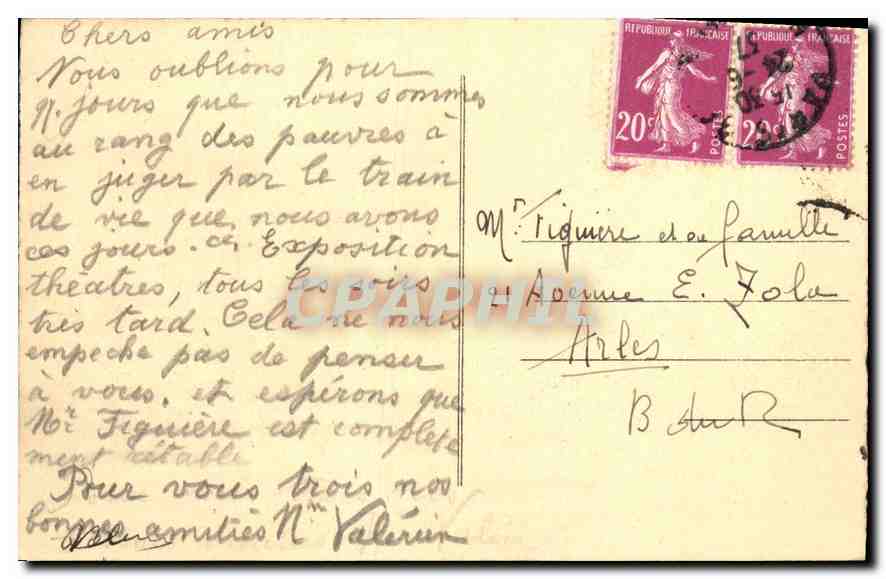 Chers amis
Nous oublions pour
q. jours que nous sommes
au rang des pauvres à
en juger par le train
de vie que nous avons
ces jours-ci. Exposition
théâtres, tous les soirs
très tard. Cela ne nous
empeche pas de penser
à vous. et espérons que
Mr Figuière est complete
ment rétabli
Pour vous trois nos
bonnes amitiés
Valérien
REPUBLIQUE FRANÇAISE
20c
POSTES
REPUBLIQUE FRANÇAISE
20c
POSTES
15 30
Mr Figuière et sa famille
Avenue E. Zola
Arles
B du R
CPAPHIL